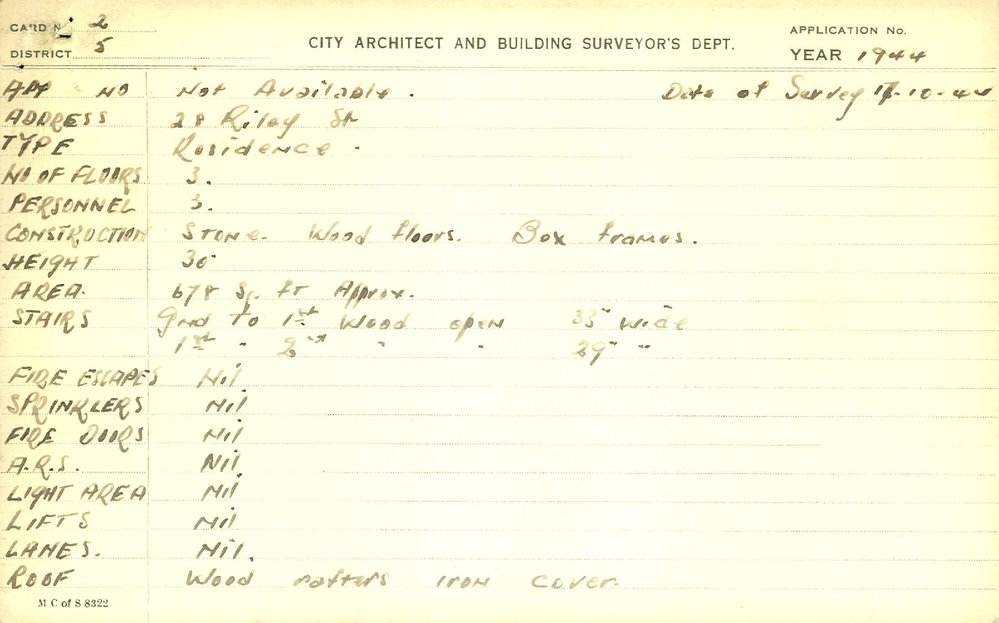 CARD No. 2
DISTRICT 5
CITY ARCHITECT AND BUILDING SURVEYOR'S DEPT.
APPLICATION No.
YEAR 1944
APP NO Not Available. Date of Survey 17-10-44
ADDRESS 28 Riley St
TYPE Residence.
NO OF FLOORS 3.
PERSONNEL 3.
CONSTRUCTION Stone. Wood floors. Box frames.
HEIGHT 30'
AREA. 678 Sq. ft Approx.
STAIRS Gnd to 1st Wood open 33" wide
1st " 2nd " " 29" "
FIRE ESCAPES Nil.
SPRINKLERS Nil.
FIRE DOORS Nil.
A.R.S. Nil.
LIGHT AREA Nil.
LIFTS Nil.
LANES. Nil.
ROOF Wood rafters iron cover.
M C of S 8322